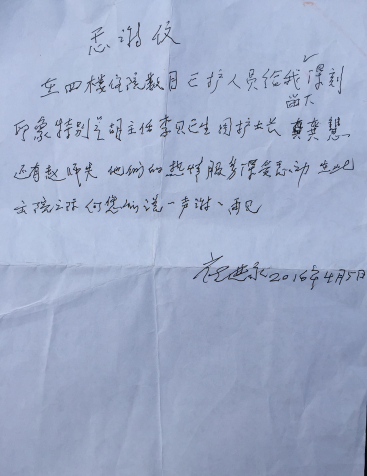 感谢信
在四楼住院数日 医护人员给我留下深刻
印象特别是胡主任李贝医生周护士长 龚慧
还有赵师失 他们的热情服务深受感动 在此
出院之际向您们说一声谢、再见
2016年4月5日